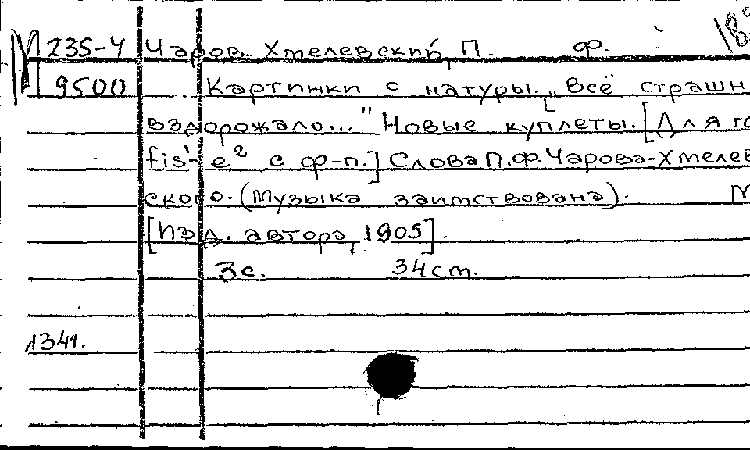 М 235-4 Чаров-Хмелевский, П. Ф. 18
9500 Картинки с натуры. „Всё страшн
вздорожало..." Новые куплеты. [Для го
fis¹- e² с ф-п.] Слова П.Ф. Чарова-Хмелев
ского. (Музыка заимствована). М
[Изд. автора, 1905].
3с. 34см.
1341.